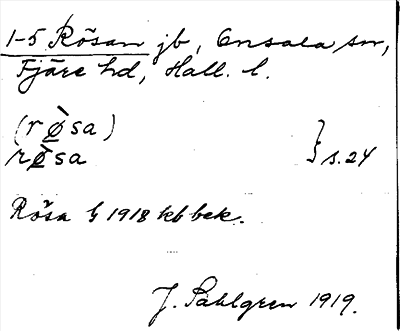 1-5 Rösan jb, Onsala sn,
Fjäre hd, Hall. l.
(rø̀sa)
rø̀sa } s. 24
Rösa G 1918 kbbek.
J. Sahlgren 1919.